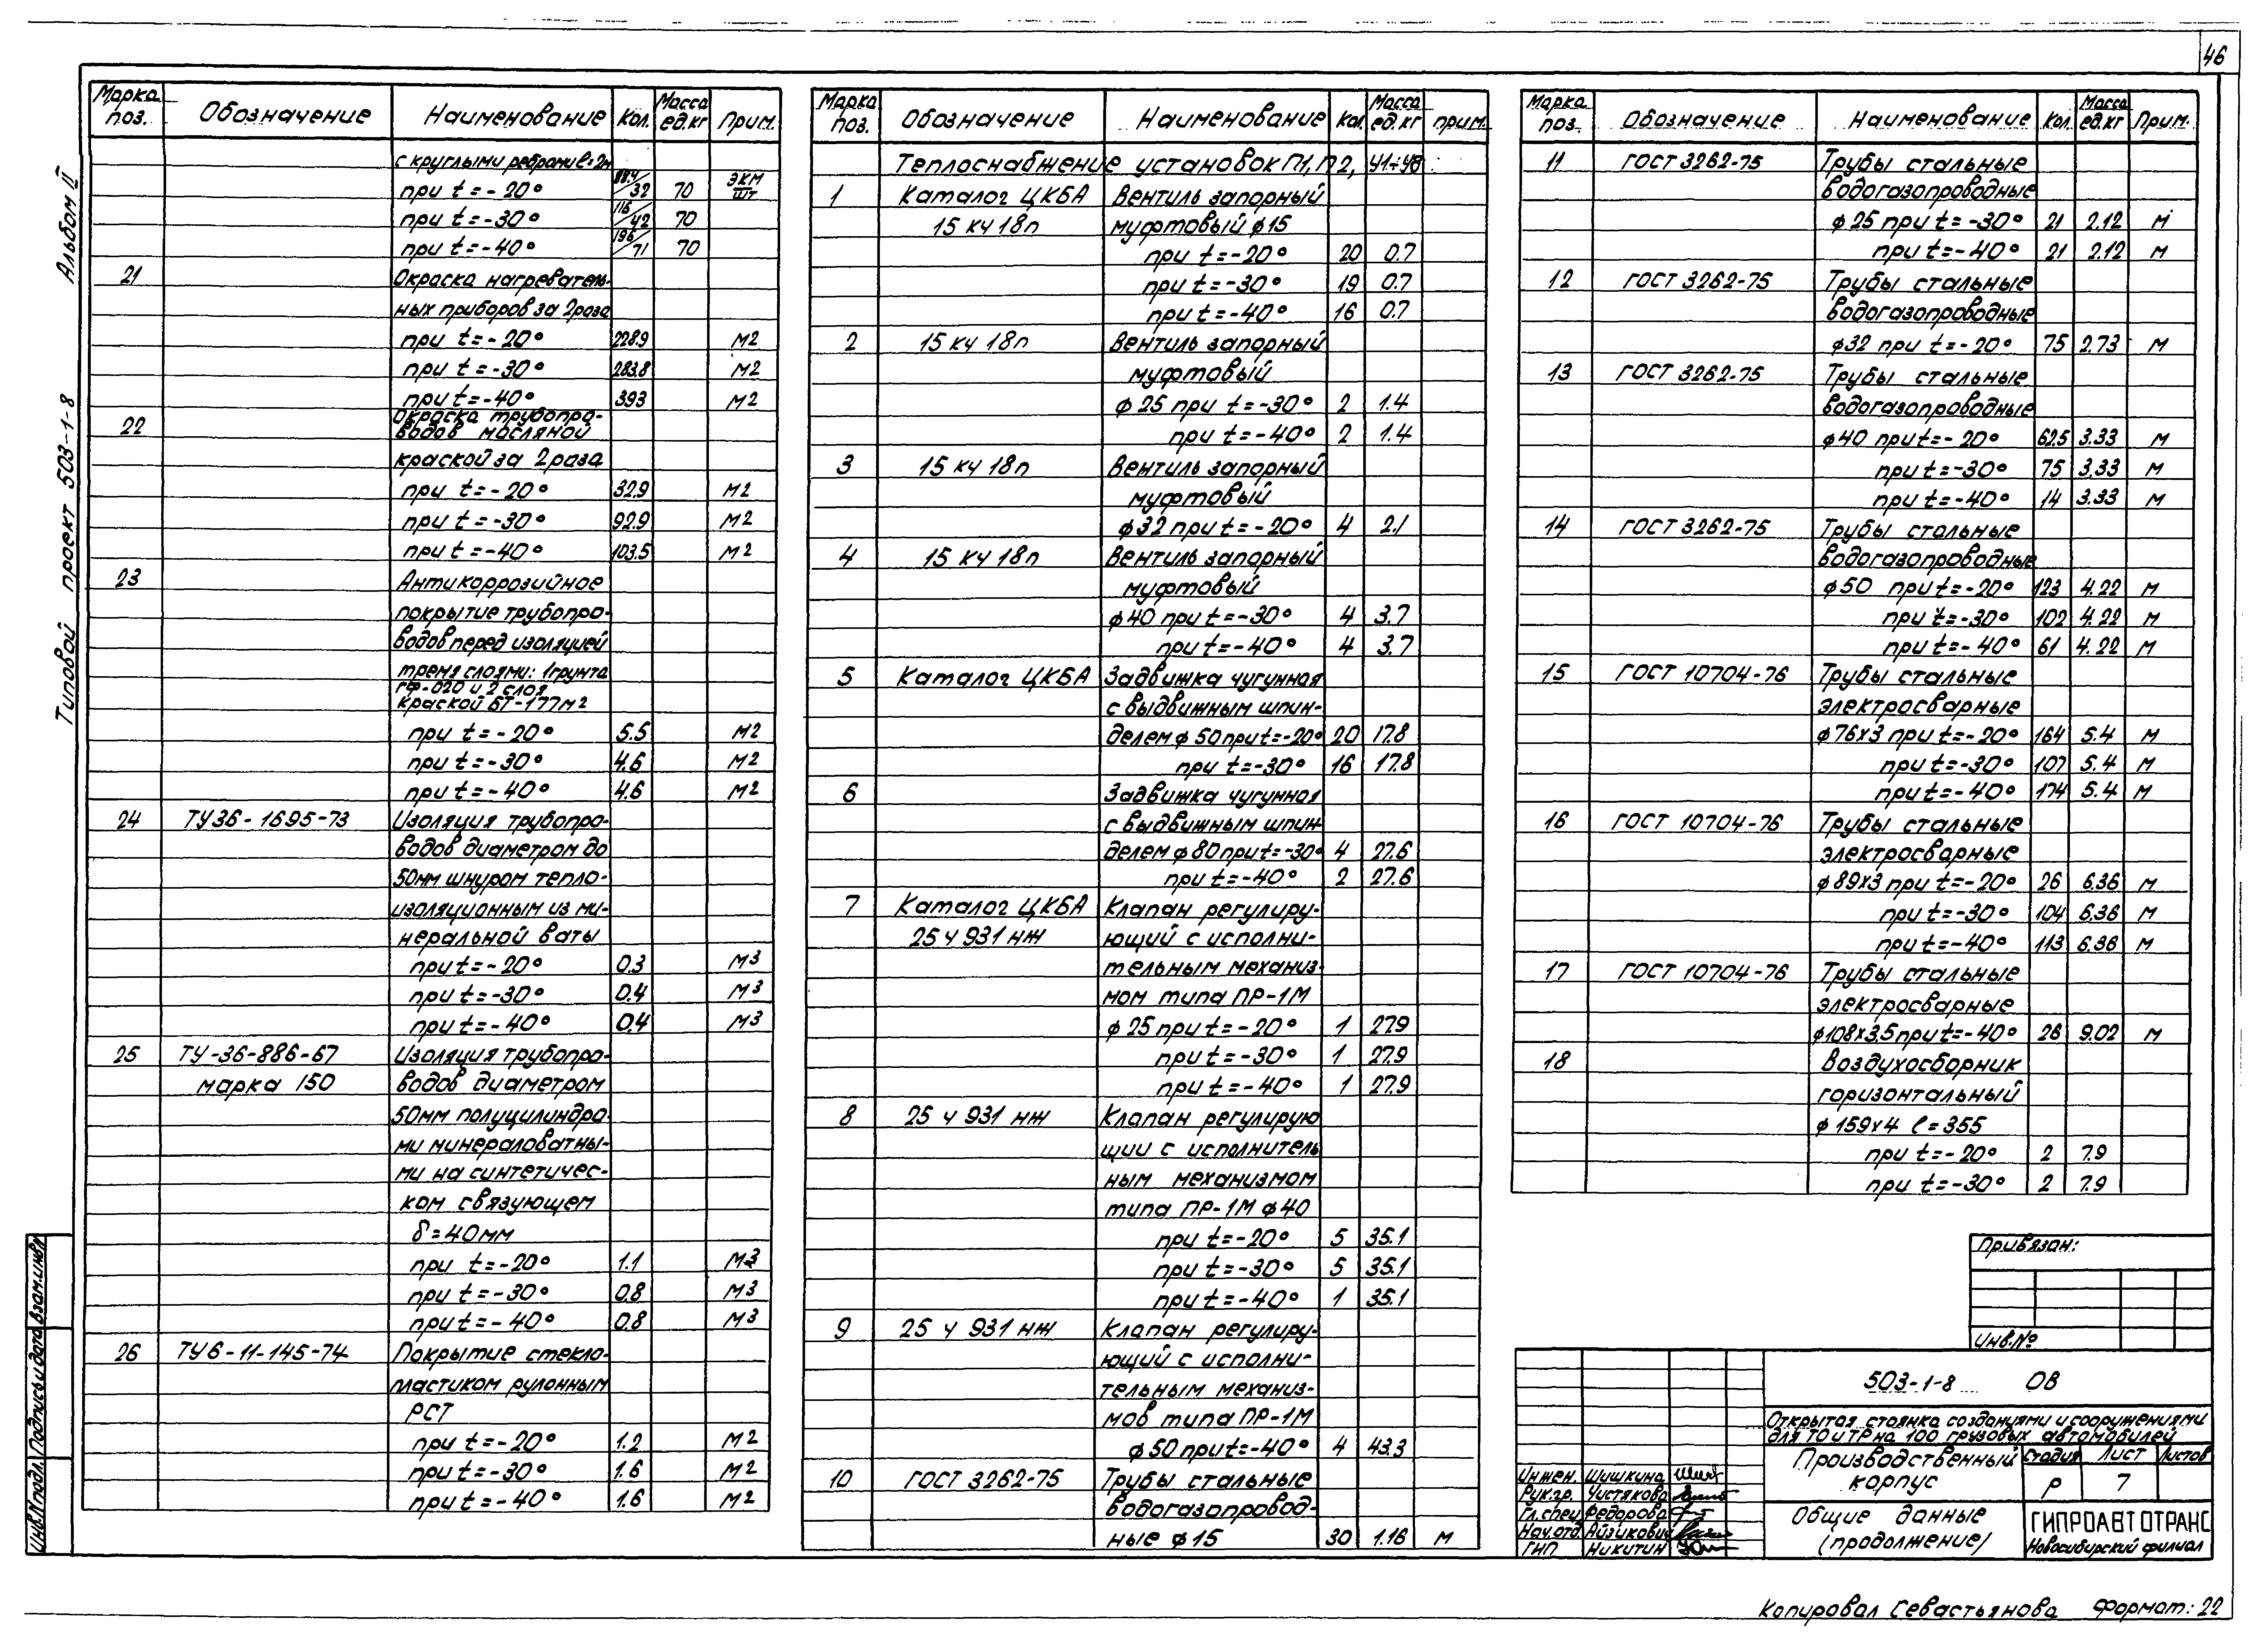 46
Альбом II
Типовой проект 503-1-8
Марка поз. Обозначение Наименование Кол. Масса ед.кг Прим.
с круглыми ребрами ℓ=2м
при t=-20° 88.4/32 70 ЭКМ/шт
при t=-30° 116/42 70
при t=-40° 196/71 70
21 Окраска нагреватель-
ных приборов за 2 раза
при t=-20° 228.9 м2
при t=-30° 283.8 м2
при t=-40° 393 м2
22 Окраска трубопро-
водов масляной
краской за 2 раза
при t=-20° 32.9 м2
при t=-30° 92.9 м2
при t=-40° 103.5 м2
23 Антикоррозийное
покрытие трубопро-
водов перед изоляцией
тремя слоями: 1 грунта
ГФ-020 и 2 слоя
краской БТ-177 м2
при t=-20° 5.5 м2
при t=-30° 4.6 м2
при t=-40° 4.6 м2
24 ТУ36-1695-73 Изоляция трубопро-
водов диаметром до
50мм шнуром тепло-
изоляционным из ми-
неральной ваты
при t=-20° 0.3 м3
при t=-30° 0.4 м3
при t=-40° 0.4 м3
25 ТУ-36-886-67 Изоляция трубопро-
марка 150 водов диаметром
50мм полуцилиндра-
ми минераловатны-
ми на синтетичес-
ком связующем
δ=40мм
при t=-20° 1.1 м3
при t=-30° 0.8 м3
при t=-40° 0.8 м3
26 ТУ6-11-145-74 Покрытие стекло-
пластиком рулонным
РСТ
при t=-20° 1.2 м2
при t=-30° 1.6 м2
при t=-40° 1.6 м2
Марка поз. Обозначение Наименование Кол. Масса ед.кг прим.
Теплоснабжение установок П1, П2, У1÷У8
1 Каталог ЦКБА Вентиль запорный
15 кч 18п муфтовый ф15
при t=-20° 20 0.7
при t=-30° 19 0.7
при t=-40° 16 0.7
2 15 кч 18п Вентиль запорный
муфтовый
ф 25 при t=-30° 2 1.4
при t=-40° 2 1.4
3 15 кч 18п Вентиль запорный
муфтовый
ф32 при t=-20° 4 2.1
4 15 кч 18п Вентиль запорный
муфтовый
ф40 при t=-30° 4 3.7
при t=-40° 4 3.7
5 Каталог ЦКБА Задвижка чугунная
с выдвижным шпин-
делем ф 50 при t=-20° 20 17.8
при t=-30° 16 17.8
6 Задвижка чугунная
с выдвижным шпин
делем ф80 при t=-30° 4 27.6
при t=-40° 2 27.6
7 Каталог ЦКБА Клапан регулиру-
25 ч 931 нж ющий с исполни-
тельным механиз-
мом типа ПР-1М
ф 25 при t=-20° 1 27.9
при t=-30° 1 27.9
при t=-40° 1 27.9
8 25 ч 931 нж Клапан регулирую
щии с исполнитель
ным механизмом
типа ПР-1М ф40
при t=-20° 5 35.1
при t=-30° 5 35.1
при t=-40° 1 35.1
9 25 ч 931 нж Клапан регулиру-
ющий с исполни-
тельным механиз-
мов типа ПР-1М
ф50 при t=-40° 4 43.3
10 ГОСТ 3262-75 Трубы стальные
водогазопровод-
ные ф15 30 1.16 м
Марка поз. Обозначение Наименование Кол. Масса ед.кг Прим.
11 ГОСТ 3262-75 Трубы стальные
водогазопроводные
ф 25 при t=-30° 21 2.12 м
при t=-40° 21 2.12 м
12 ГОСТ 3262-75 Трубы стальные
водогазопроводные
ф32 при t=-20° 75 2.73 м
13 ГОСТ 3262-75 Трубы стальные
водогазопроводные
ф40 при t=-20° 62.5 3.33 м
при t=-30° 75 3.33 м
при t=-40° 14 3.33 м
14 ГОСТ 3262-75 Трубы стальные
водогазопроводные
ф50 при t=-20° 123 4.22 м
при t=-30° 102 4.22 м
при t=-40° 61 4.22 м
15 ГОСТ 10704-76 Трубы стальные
электросварные
ф76х3 при t=-20° 164 5.4 м
при t=-30° 107 5.4 м
при t=-40° 174 5.4 м
16 ГОСТ 10704-76 Трубы стальные
электросварные
ф89х3 при t=-20° 26 6.36 м
при t=-30° 104 6.36 м
при t=-40° 113 6.36 м
17 ГОСТ 10704-76 Трубы стальные
электросварные
ф108х3.5 при t=-40° 26 9.02 м
18 Воздухосборник
горизонтальный
ф 159х4 ℓ=355
при t=-20° 2 7.9
при t=-30° 2 7.9
Привязан:
Инв.№
503-1-8 ОВ
Открытая стоянка со зданиями и сооружениями
для ТО и ТР на 100 грузовых автомобилей
Производственный корпус
Стадия Лист Листов
Р 7
Общие данные
(продолжение)
ГИПРОАВТОТРАНС
Новосибирский филиал
Инжен. Шишкина
Рук.гр. Чистякова
Гл.спец Федорова
Нач.отд Айзикович
ГИП Никитин
Инв.№ подл. Подпись и дата Взам.инв.№
Копировал Севастьянова Формат: 22